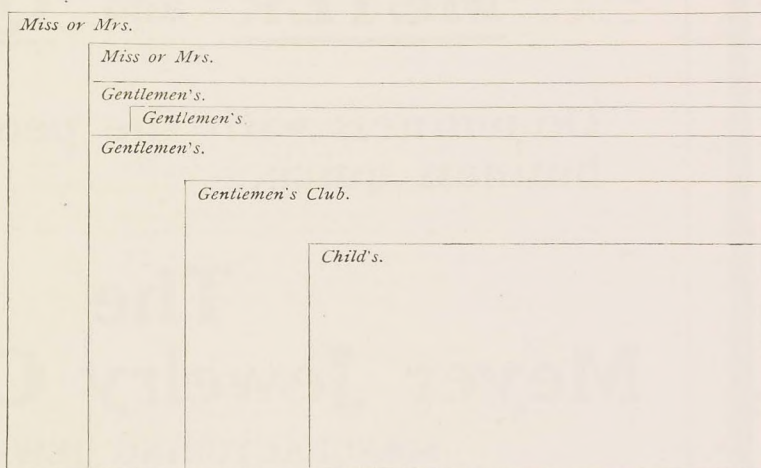 Miss or Mrs.
Miss or Mrs.
Gentlemen's.
Gentlemen's.
Gentlemen's.
Gentlemen's Club.
Child's.
The
Meyer Jewelry